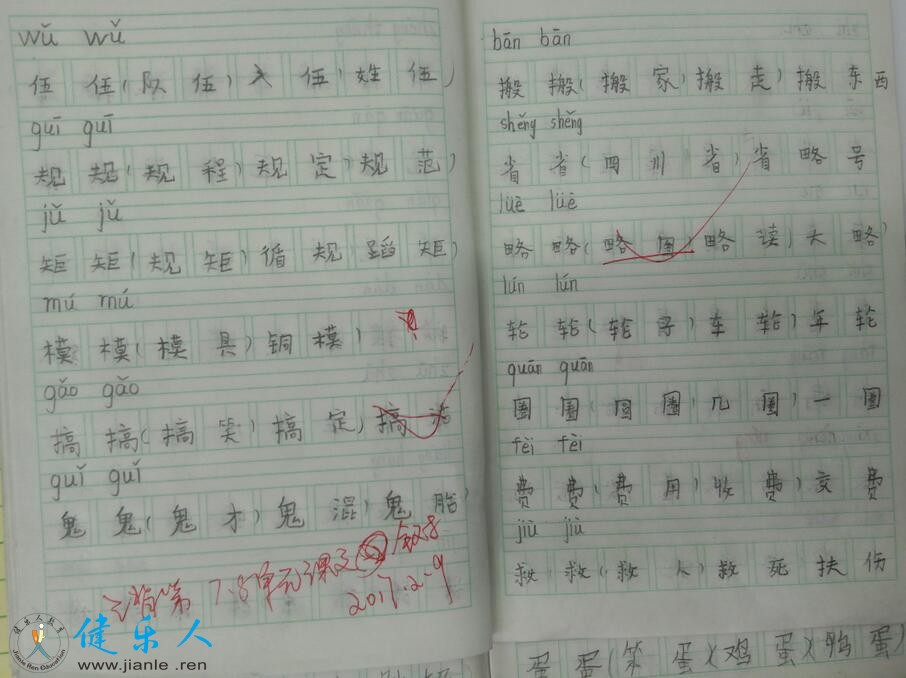 wǔ wǔ
伍 伍(队 伍)入 伍)姓 伍)
guī guī
规 规(规 程)规 定)规 范)
jǔ jǔ
矩 矩(规 矩)循 规 蹈 矩)
mú mú
模 模(模 具)铜 模)
gǎo gǎo
搞 搞(搞 笑)搞 定)搞 活
guǐ guǐ
鬼 鬼(鬼 才)鬼 混)鬼 胎)
第 7.8单元课文
2017.2.9
健乐人
www.jianle.ren
bān bān
搬 搬(搬 家)搬 走)搬 东 西
shěng shěng
省 省(四 川 省)省 略 号
lüè lüè
略 略(略 图)略 读)大 略)
lún lún
轮 轮(轮 子)车 轮)年 轮
quān quān
圈 圈(圆 圈)几 圈)一 圈
fèi fèi
费 费(费 用)收 费)交 费
jiù jiù
救 救(救 人)救 死 扶 伤
蛋 蛋(笨 蛋)(鸡 蛋)(鸭 蛋)